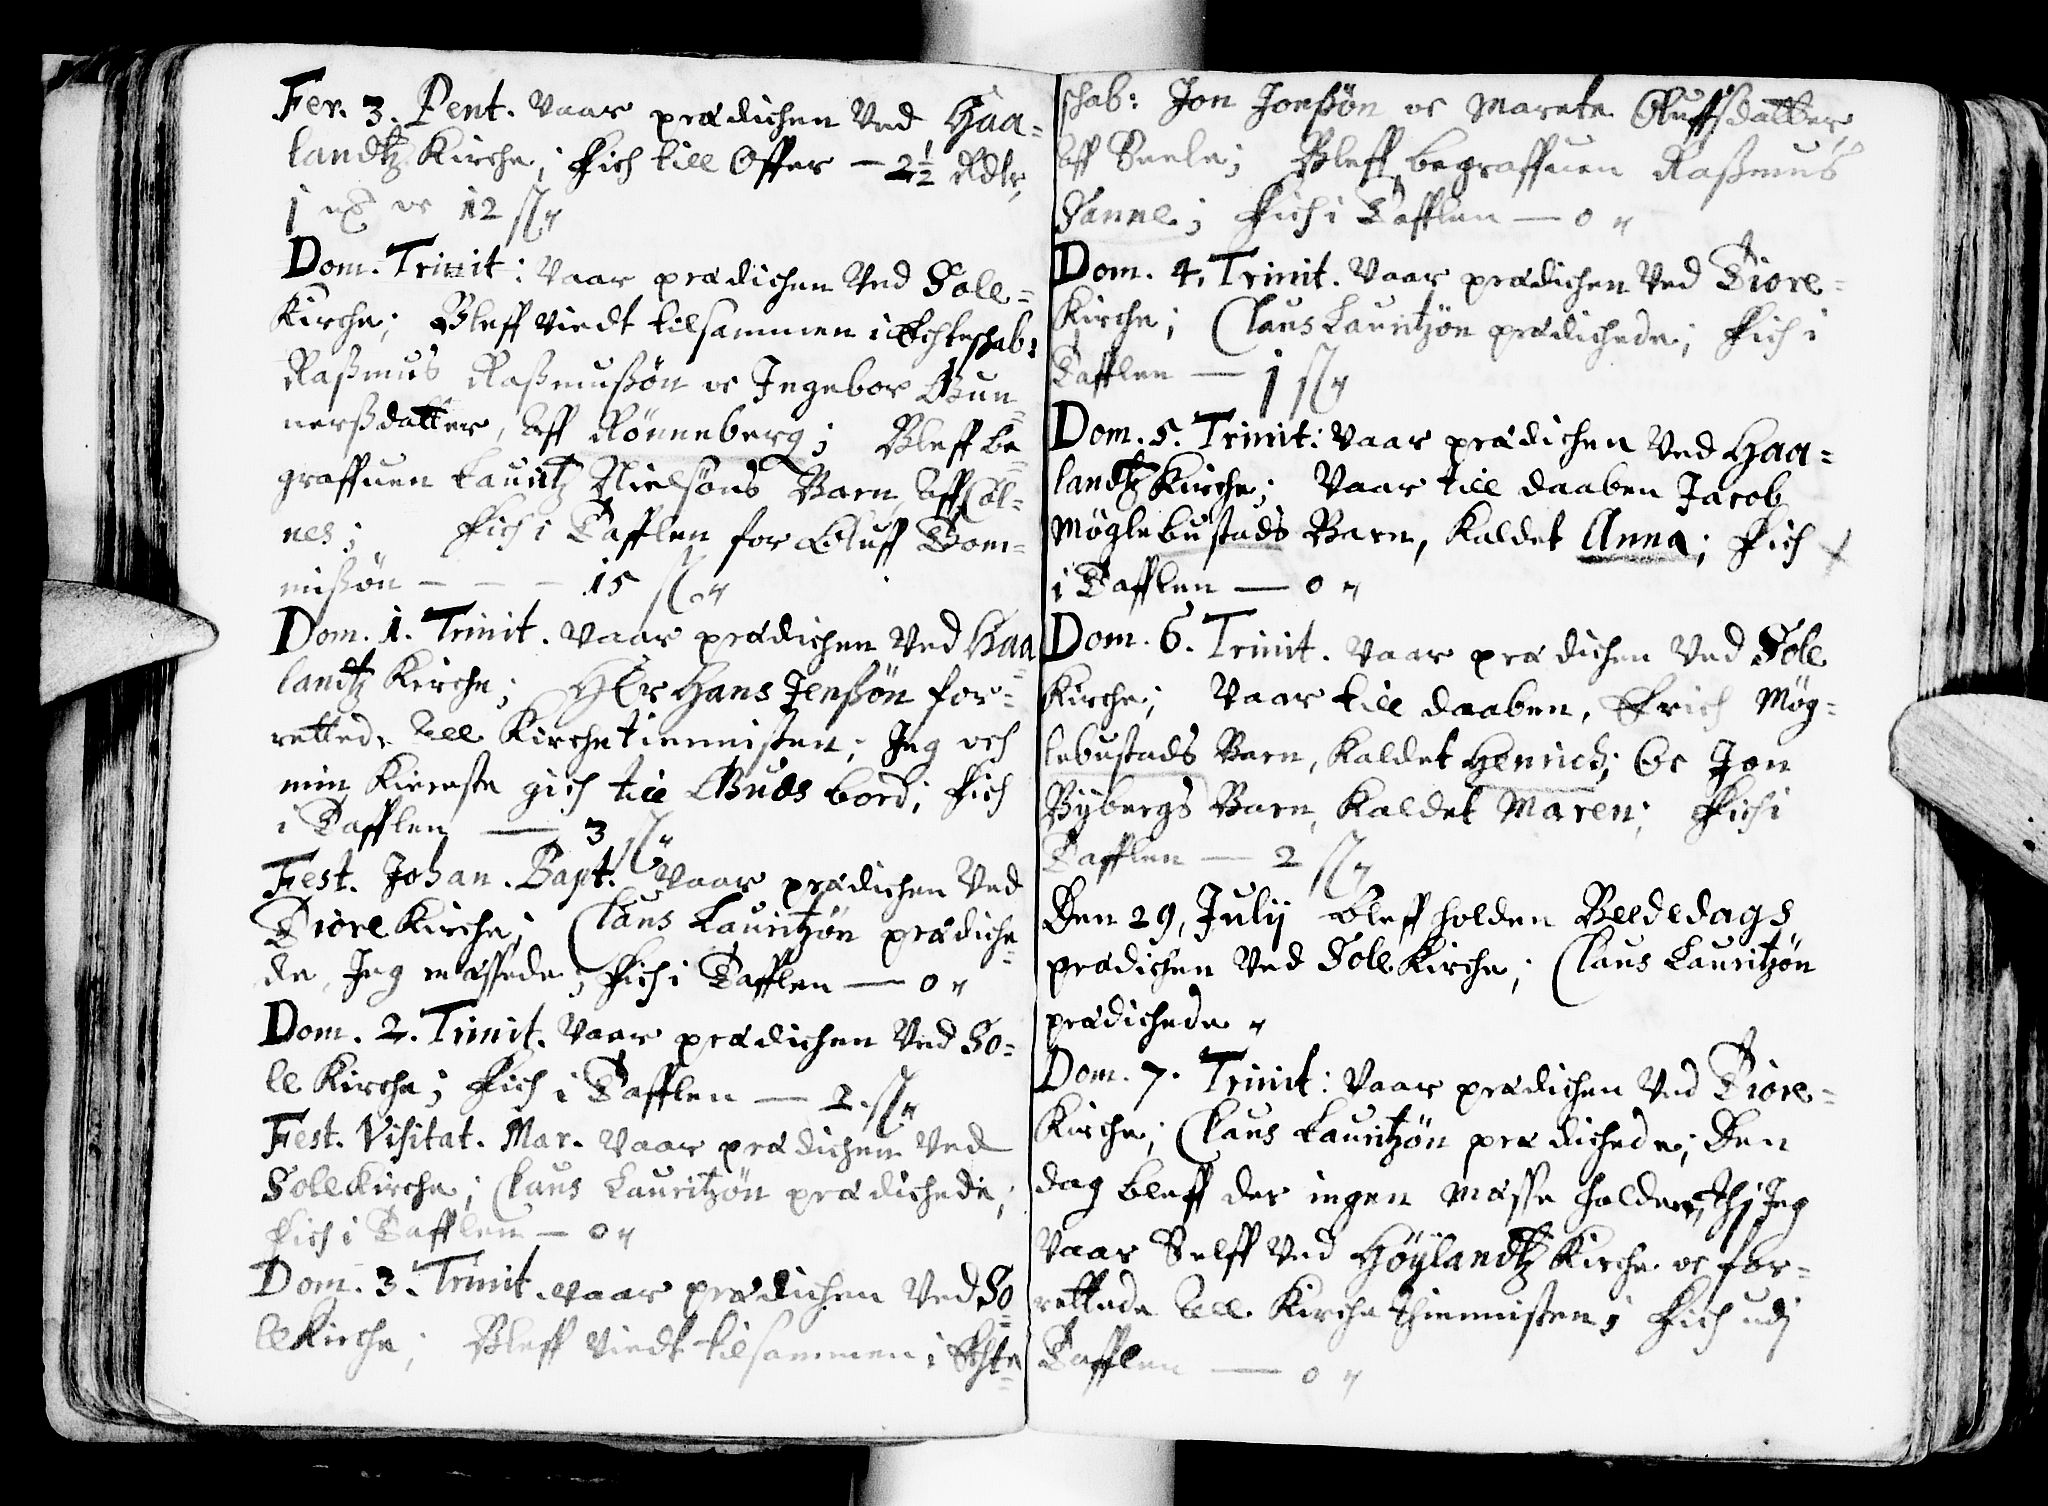 Fer. 3. Pent. Vaar prædichen Ved Haa=
landtz Kirche; Fich till Offer — 2½ Rdlr,
1 oc 12 ſſ
Dom. Trinit: Vaar prædichen Ved Sole=
Kirche; Bleff Viedt tilsammen i Echteschab:
Raßmus Raßmußøn oc Ingebor Gun=
nerßdatter, Aff Rönneberg; Bleff be=
graffuen Lauritz Nielsøns Barn, Aff Sol=
nes; Fich i Tafflen for Oluff Tom=
mißøn — — — 15 ſſ
Dom. 1. Trinit. Vaar prædichen Ved Haa=
landtz Kirche; HEr Hans Jenßøn for=
rettede All Kirchetiennisten; Jeg och
min Kiereste gich till Guds bord; Fich
i Tafflen — 3 ſſ
Fest. Johan. Bapt. Vaar prædichen Ved
Tiore Kirche; Claus Lauritzøn prædiche=
de, Jeg messede; Fich i Tafflen — 0
Dom. 2. Trinit. Vaar prædichen Ved So=
le Kirche; Fich i Tafflen — 2 ſſ
Fest. Visitat. Mar. Vaar prædichen Ved
Sole Kirche; Claus Lauritzøn prædichede;
Fich i Tafflen — 0
Dom. 3. Trinit. Vaar prædichen Ved So=
le Kirche; Bleff Viedt tilsammen i Echte=
schab: Jon Jonßøn oc Marete Oluffsdatter,
Aff Seele; Bleff begraffuen Raßmus
Sanne; Fich i Tafflen — 0
Dom. 4. Trinit. Vaar prædichen Ved Tiore=
Kirche; Claus Lauritzøn prædichede; Fich i
Tafflen — 1 ſſ
Dom. 5. Trinit: Vaar prædichen Ved Haa=
landtz Kirche; Vaar till daaben Jacob
Møglebustads Barn, Kaldet Anna; Fich
i Tafflen — 0
Dom. 6. Trinit. Vaar prædichen Ved Sole
Kirche; Vaar till daaben, Erich Møg=
lebustads Barn, Kaldet Henrich; Oc Jon
Bybergs Barn, Kaldet Maren; Fich i
Tafflen — 2 ſſ
Den 29, Julij bleff holden Beededags
prædichen Ved Sole Kirche; Claus Lauritzøn
prædichede
Dom. 7. Trinit: Vaar prædichen Ved Tiore=
Kirche; Claus Lauritzøn prædichede; Den
dag bleff der ingen Messe holden, Thj Jeg
Vaar Selff Ved Høylandtz Kirche oc for=
rettede All Kirche thiennisten; Fich udj
Tafflen — 0